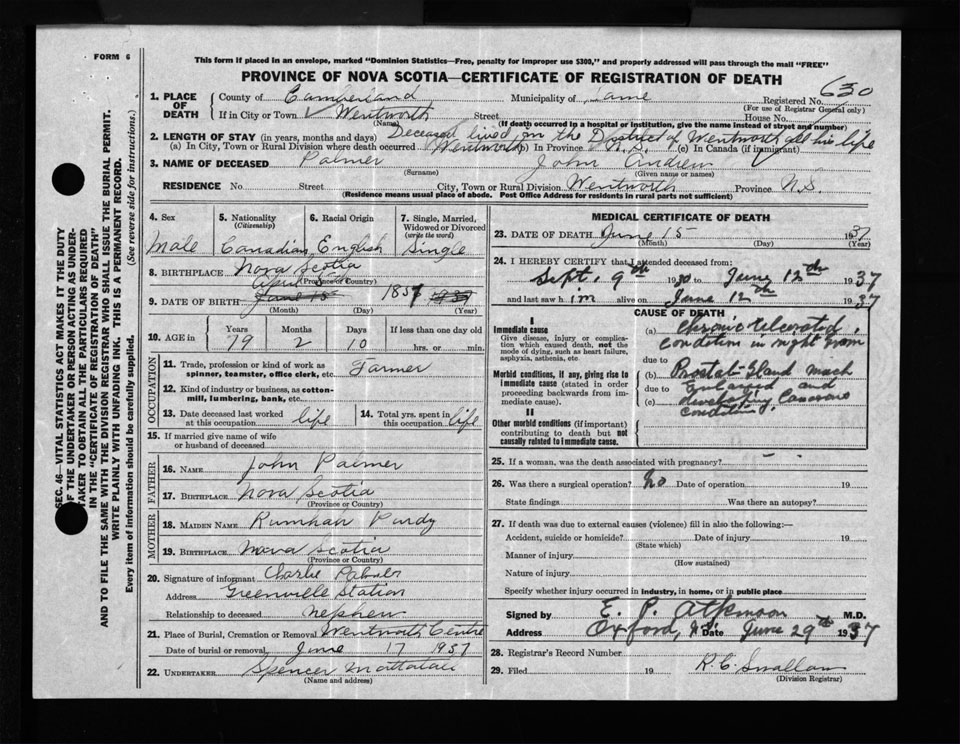 FORM 6
This form if placed in an envelope, marked "Dominion Statistics—Free, penalty for improper use $300," and properly addressed will pass through the mail "FREE"
PROVINCE OF NOVA SCOTIA—CERTIFICATE OF REGISTRATION OF DEATH
630
1. PLACE OF DEATH
County of Cumberland Municipality of Same Registered No.
(For use of Registrar General only)
If in City or Town Wentworth Street House No.
(Name) (If death occurred in a hospital or institution, give the name instead of street and number)
2. LENGTH OF STAY (in years, months and days) Deceased lived in the District of Wentworth all his life
(a) In City, Town or Rural Division where death occurred Wentworth (b) In Province N.S. (c) In Canada (if immigrant)
3. NAME OF DECEASED Palmer John Andrew
(Surname) (Given name or names)
RESIDENCE No. Street City, Town or Rural Division Wentworth Province N.S.
(Residence means usual place of abode. Post Office Address for residents in rural parts not sufficient)
4. Sex Male
5. Nationality (Citizenship) Canadian
6. Racial Origin English
7. Single, Married, Widowed or Divorced (write the word) Single
8. BIRTHPLACE Nova Scotia
(Province or Country)
9. DATE OF BIRTH April 5 June 15 1857 1937
(Month) (Day) (Year)
10. AGE in Years 79 Months 2 Days 10 If less than one day old hrs. or min.
OCCUPATION
11. Trade, profession or kind of work as spinner, teamster, office clerk, etc. Farmer
12. Kind of industry or business, as cotton-mill, lumbering, bank, etc.
13. Date deceased last worked at this occupation life
14. Total yrs. spent in this occupation life
15. If married give name of wife or husband of deceased
FATHER
16. NAME John Palmer
17. BIRTHPLACE Nova Scotia
(Province or Country)
MOTHER
18. MAIDEN NAME Purdy
19. BIRTHPLACE Nova Scotia
(Province or Country)
20. Signature of informant Charlie Palmer
Address Greenville Station
Relationship to deceased Nephew
21. Place of Burial, Cremation or Removal Wentworth Centre
Date of burial or removal June 17 1937
22. UNDERTAKER Spencer Mattatall
(Name and address)
MEDICAL CERTIFICATE OF DEATH
23. DATE OF DEATH June 15 1937
(Month) (Day) (Year)
24. I HEREBY CERTIFY that I attended deceased from:
Sept. 9th 1930 to June 12th 1937
and last saw him alive on June 12th 1937
CAUSE OF DEATH
I
Immediate cause
Give disease, injury or complication which caused death, not the mode of dying, such as heart failure, asphyxia, asthenia, etc
(a) Chronic ulcerated condition in right groin
due to
Morbid conditions, if any, giving rise to immediate cause (stated in order proceeding backwards from immediate cause).
(b) Prostat-Gland much
due to enlarged and
(c) developing Cancerous condition.
II
Other morbid conditions (if important) contributing to death but not causally related to immediate cause.
25. If a woman, was the death associated with pregnancy? —
26. Was there a surgical operation? No Date of operation 19
State findings Was there an autopsy?
27. If death was due to external causes (violence) fill in also the following:—
Accident, suicide or homicide? Date of injury 19
(State which)
Manner of injury
(How sustained)
Nature of injury
Specify whether injury occurred in industry, in home, or in public place
Signed by E. P. Atkinson M.D.
Address Oxford, N.S. Date June 29th 1937
28. Registrar's Record Number
29. Filed 19 R. C. Swallow
(Division Registrar)
SEC. 46—VITAL STATISTICS ACT MAKES IT THE DUTY
OF THE UNDERTAKER OR PERSON ACTING AS UNDER-
TAKER TO OBTAIN ALL THE PARTICULARS REQUIRED
IN THE "CERTIFICATE OF REGISTRATION OF DEATH"
AND TO FILE THE SAME WITH THE DIVISION REGISTRAR WHO SHALL ISSUE THE BURIAL PERMIT.
WRITE PLAINLY WITH UNFADING INK. THIS IS A PERMANENT RECORD.
Every item of information should be carefully supplied. (See reverse side for instructions.)